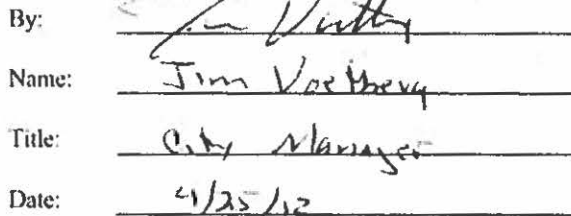 By:
Name: Jim Voetberg
Title: City Manager
Date: 4/25/12